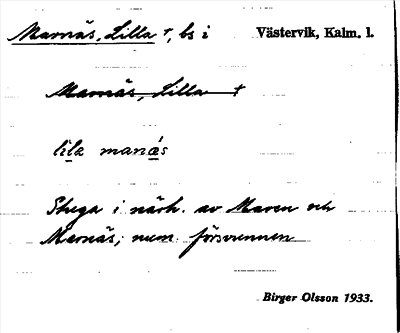 Marnäs, Lilla †, bs i Västervik, Kalm. l.
Marnäs, Lilla †
lila manäs
Stuga i närh. av Maren och
Marnäs; num. försvunnen
Birger Olsson 1933.